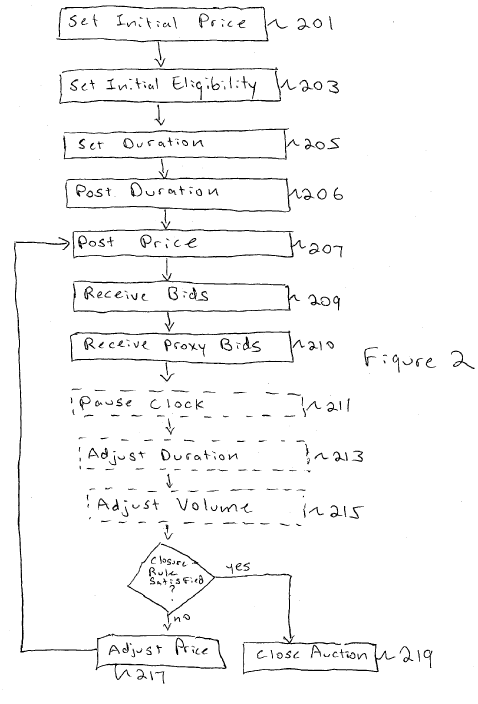 Set Initial Price 201
Set Initial Eligibility 203
Set Duration 205
Post Duration 206
Post Price 207
Receive Bids 209
Receive Proxy Bids 210
Figure 2
Pause Clock 211
Adjust Duration 213
Adjust Volume 215
Closure
Rule
Satisfied
?
yes
no
Adjust Price
217
Close Auction 219